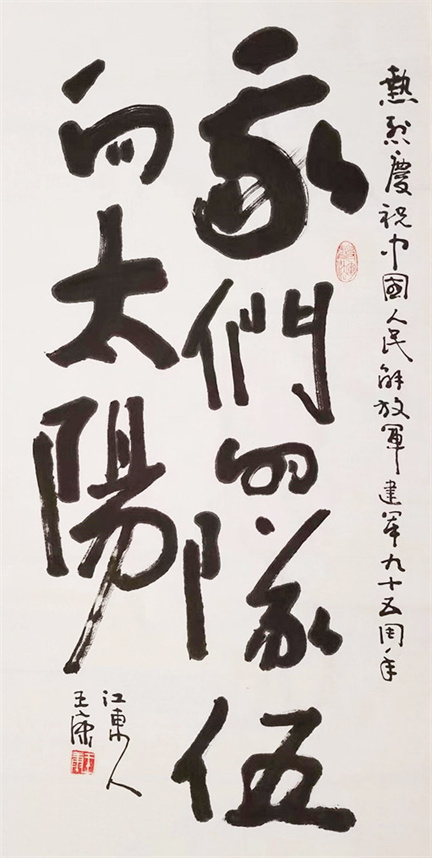 熱烈慶祝中國人民解放軍建軍九十五周年
我們的隊伍
向太陽
江東人
王康